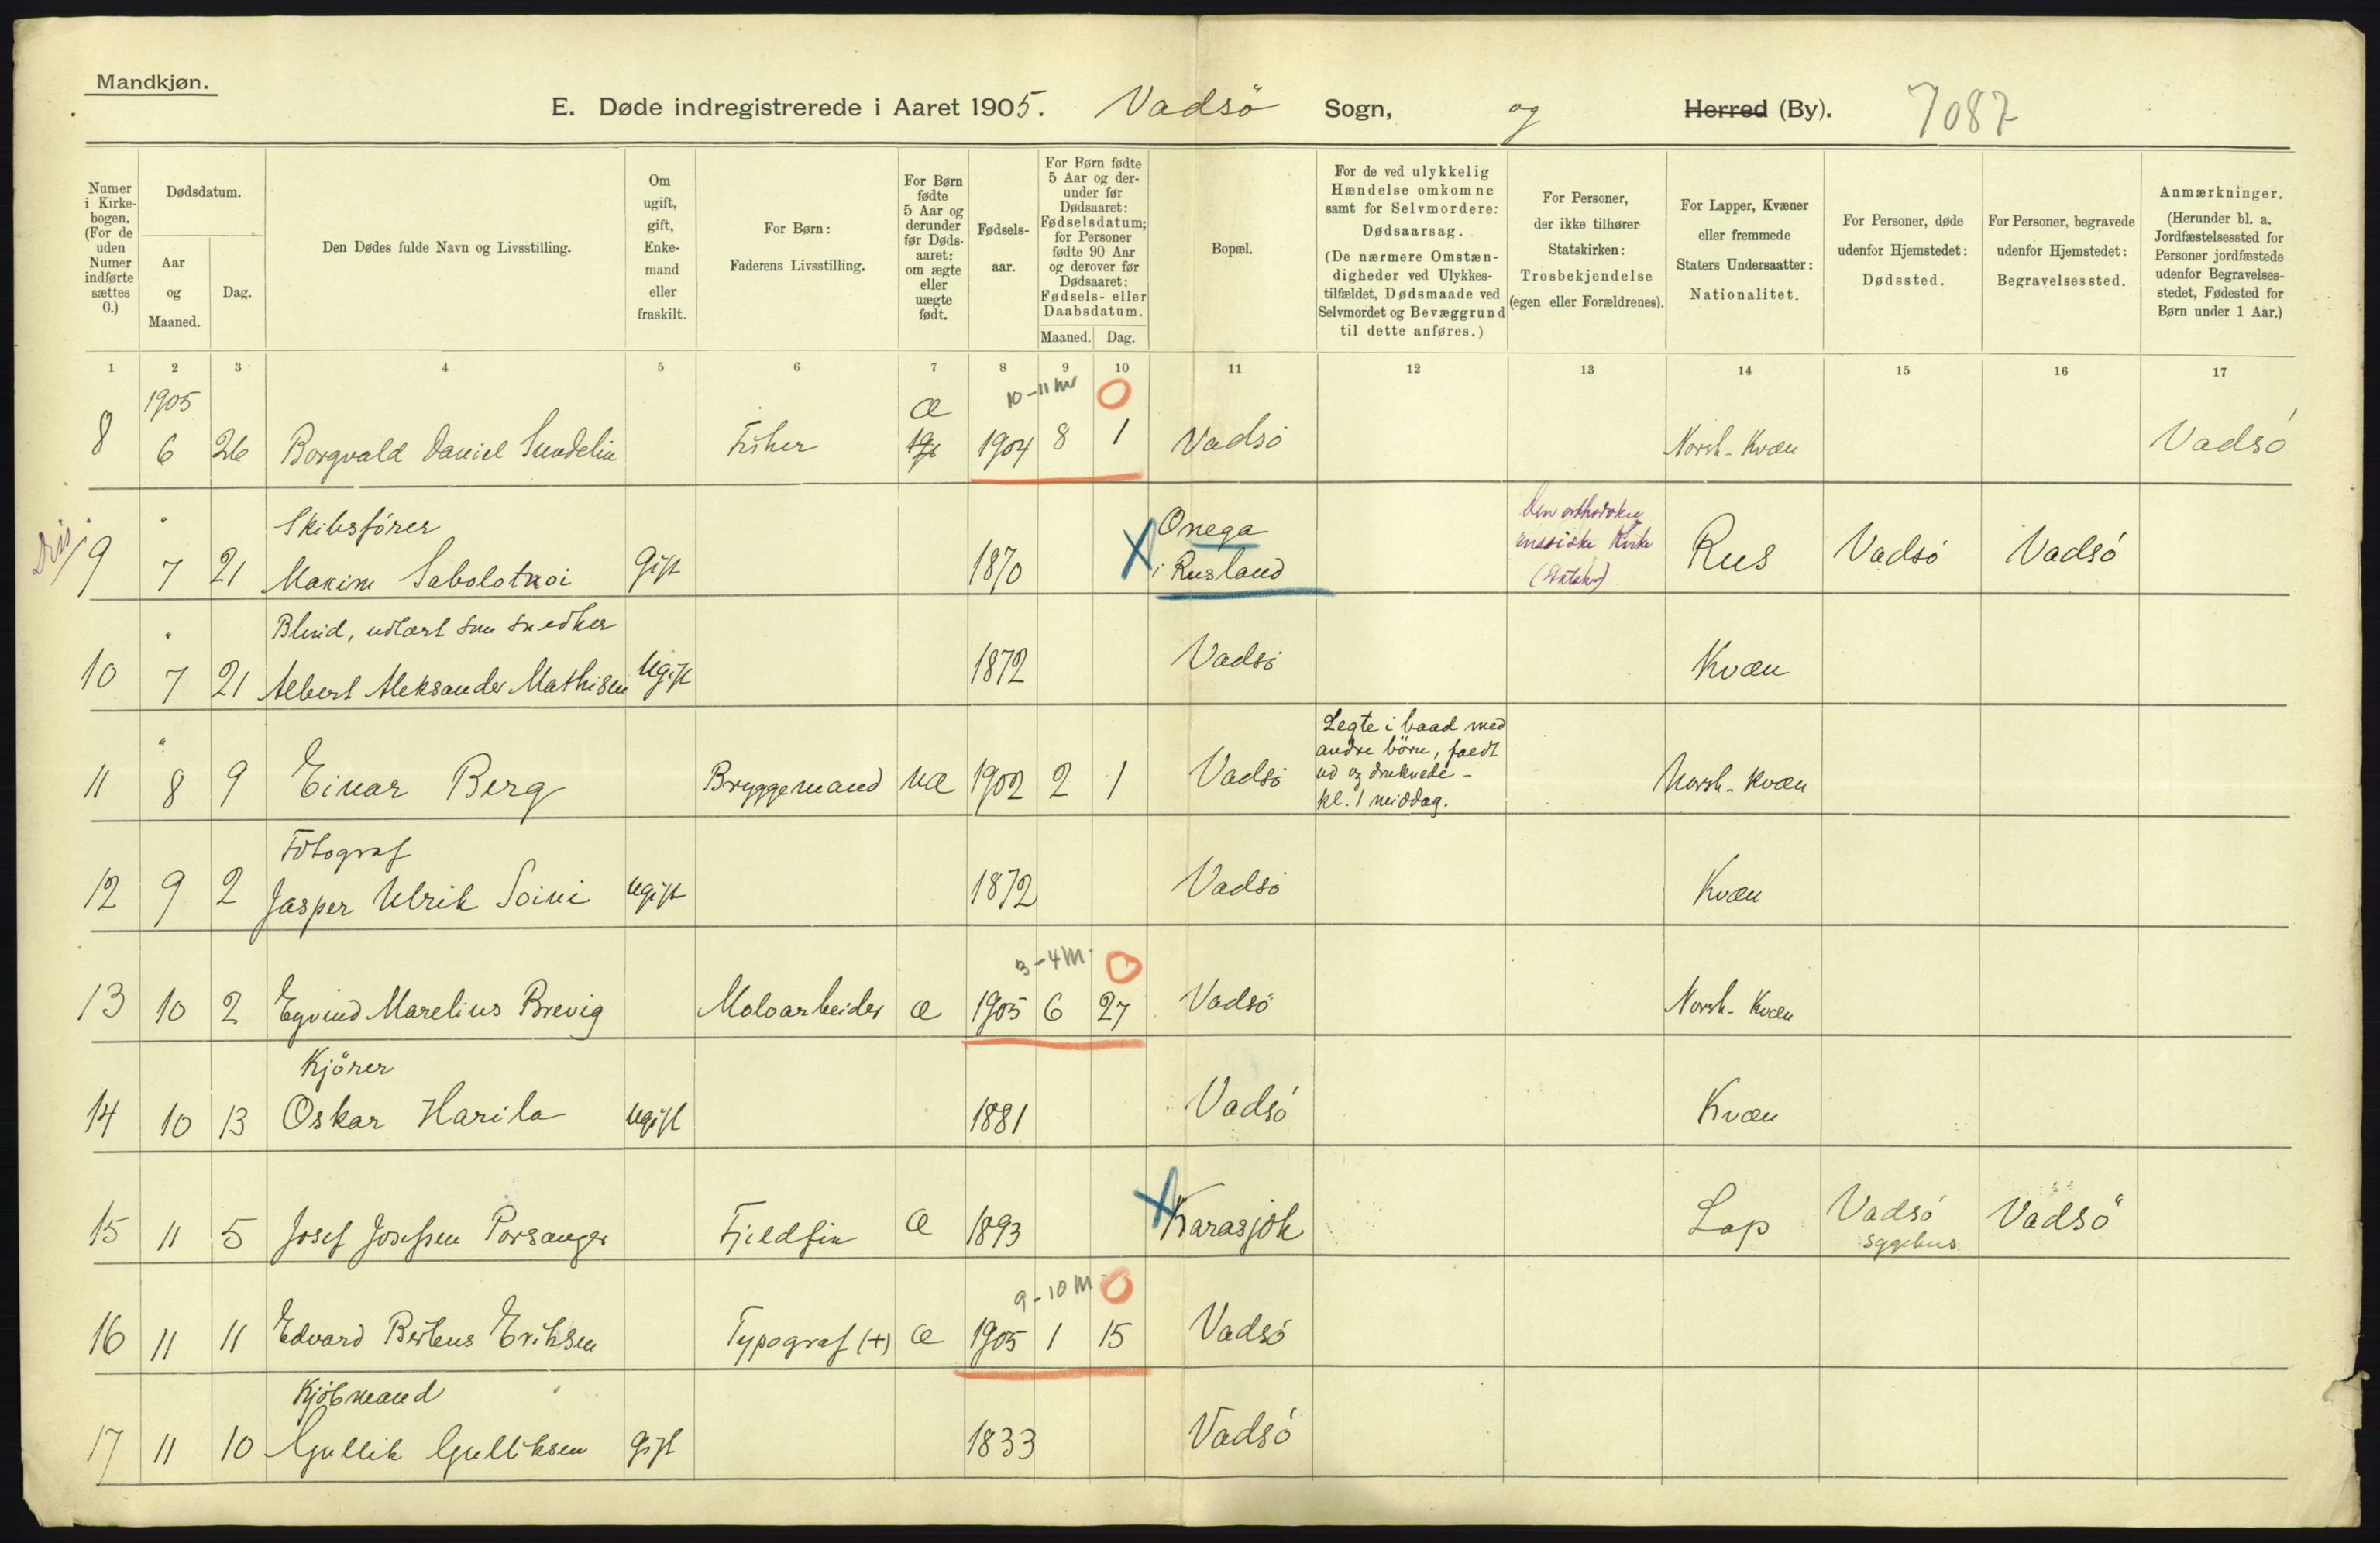 Mandkjøn.
E. Døde indregistrerede i Aaret 1905. Vadsö Sogn, og Herred (By). 7087
Numer
i Kirke-
bogen.
(For de
uden
Numer
indførte
sættes
0.)
Dødsdatum.
Aar
og
Maaned.
Dag.
Den Dødes fulde Navn og Livsstilling.
Om
ugift,
gift,
Enke-
mand
eller
fraskilt.
For Børn:
Faderens Livsstilling.
For Børn
fødte
5 Aar og
derunder
før Døds-
aaret:
om ægte
eller
uægte
født.
Fødsels-
aar.
For Børn fødte
5 Aar og der-
under før
Dødsaaret:
Fødselsdatum;
for Personer
fødte 90 Aar
og derover før
Dødsaaret:
Fødsels- eller
Daabsdatum.
Maaned. Dag.
Bopæl.
For de ved ulykkelig
Hændelse omkomne
samt for Selvmordere:
Dødsaarsag.
(De nærmere Omstæn-
digheder ved Ulykkes-
tilfældet, Dødsmaade ved
Selvmordet og Bevæggrund
til dette anføres.)
For Personer,
der ikke tilhører
Statskirken:
Trosbekjendelse
(egen eller Forældrenes).
For Lapper, Kvæner
eller fremmede
Staters Undersaatter:
Nationalitet.
For Personer, døde
udenfor Hjemstedet:
Dødssted.
For Personer, begravede
udenfor Hjemstedet:
Begravelsessted.
Anmærkninger.
(Herunder bl. a.
Jordfæstelsessted for
Personer jordfæstede
udenfor Begravelses-
stedet, Fødested for
Børn under 1 Aar.)
1 2 3 4 5 6 7 8 9 10 11 12 13 14 15 16 17
1905 æ 10-11 m 0
8 6 26 Borgvald Daniel Sundelin Fisker 1904 8 1 Vadsö Norsk-Kvæn Vadsö
" Skibsförer Onega Den orthodoxe
russiske Kirke
9 7 21 Maxim Sabolotnoi Gift 1870 i Rusland (Statsk.) Rus Vadsö Vadsö
" Blind, udlært som snedker
10 7 21 Albert Aleksander Mathisen Ugift 1872 Vadsö Kvæn
" Legte i baad med
andre börn, faldt
11 8 9 Einar Berg Bryggemand uæ 1902 2 1 Vadsö ud og druknede - Norsk-Kvæn
kl. 1 middag.
Fotograf
12 9 2 Jasper Ulrik Soini Ugift 1872 Vadsö Kvæn
3-4 M. 0
13 10 2 Eyvind Marelius Brevig Moloarbeider æ 1905 6 27 Vadsö Norsk-Kvæn
Kjörer
14 10 13 Oskar Harila Ugift 1881 Vadsö Kvæn
15 11 5 Josef Josefsen Porsanger Fjeldfin æ 1893 Karasjok Lap Vadsö Vadsö
sygehus
9-10 M 0
16 11 11 Edvard Bertens Eriksen Typograf (+) æ 1905 1 15 Vadsö
Kjöbmand
17 11 10 Gullik Gulliksen Gift 1833 Vadsö